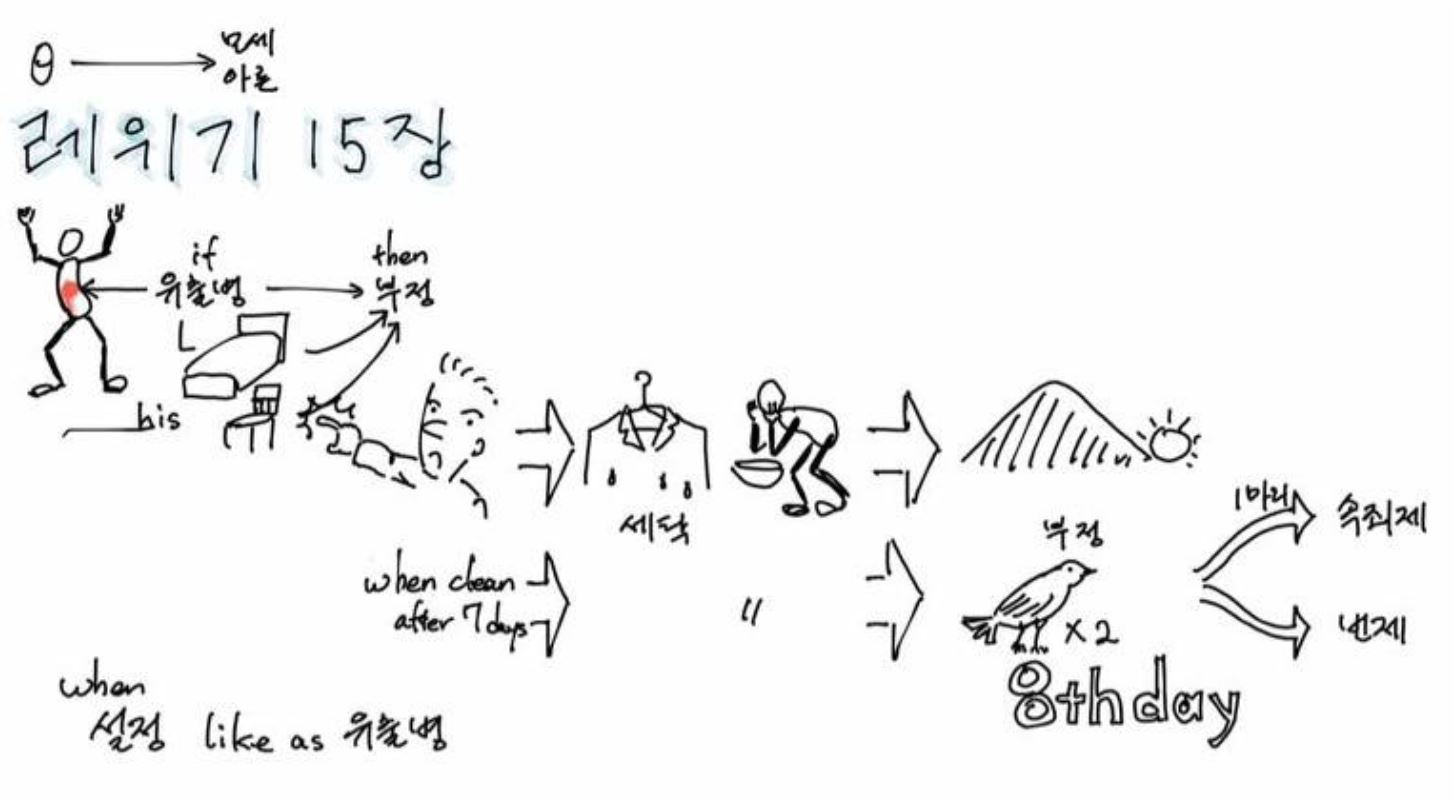 θ → 모세
아론
레위기 15장
if
유출병
then
부정
his
세탁
부정
x 2
1마리
속죄제
번제
when clean
after 7 days
〃
8th day
when
설정 like as 유출병